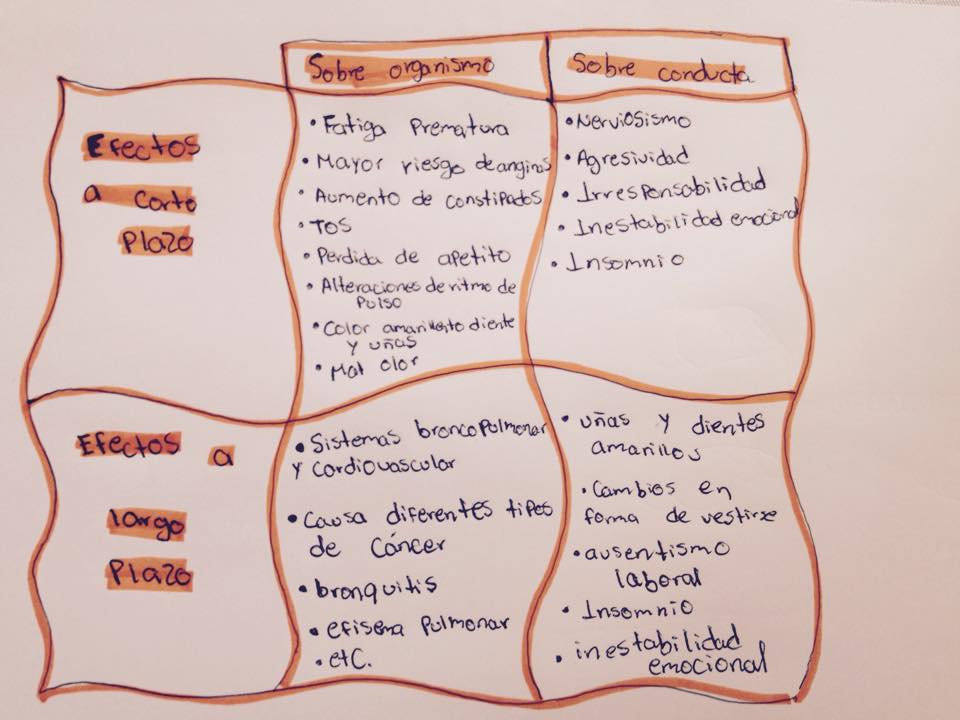 Sobre organismo
Sobre conducta
Efectos
a corto
Plazo
• Fatiga Prematura
• Mayor riesgo de anginas
• Aumento de constipados
• Tos
• Perdida de apetito
• Alteraciones de ritmo de
Pulso
• Color amarillento diente
y uñas
• Mal olor
• Nerviosismo
• Agresividad
• Irresponsabilidad
• Inestabilidad emocional
• Insomnio
Efectos a
largo
Plazo
• Sistemas broncopulmonar
y cardiovascular
• Causa diferentes tipos
de cáncer
• bronquitis
• efisema Pulmonar
• etc.
• uñas y dientes
amarillos
• Cambios en
forma de vestirse
• ausentismo
laboral
• Insomnio
• inestabilidad
emocional